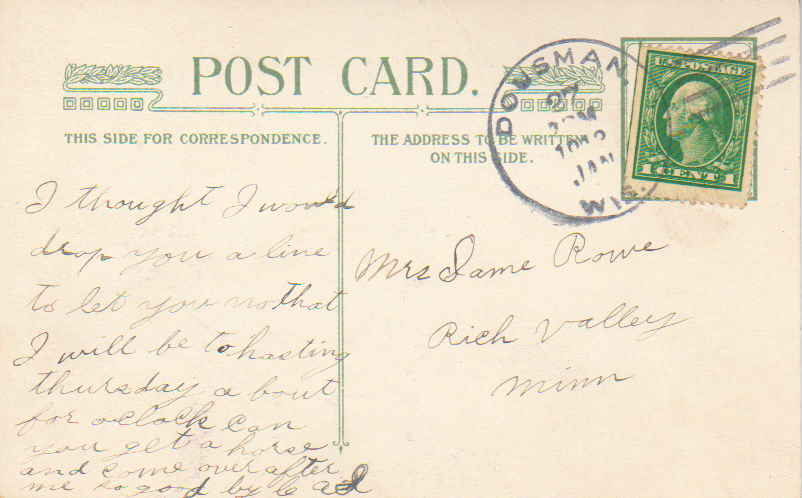 POST CARD.
THIS SIDE FOR CORRESPONDENCE.
THE ADDRESS TO BE WRITTEN
ON THIS SIDE.
DOUSMAN,
27
JAN
WIS.
U.S. POSTAGE
1 CENT 1
I thought I would
drop you a line
to let you no that
I will be to hasting
thursday a bout
for oclock can
you get a horse
and come over after
me so good by
Mrs Same Rowe
Rich Valley
Minn